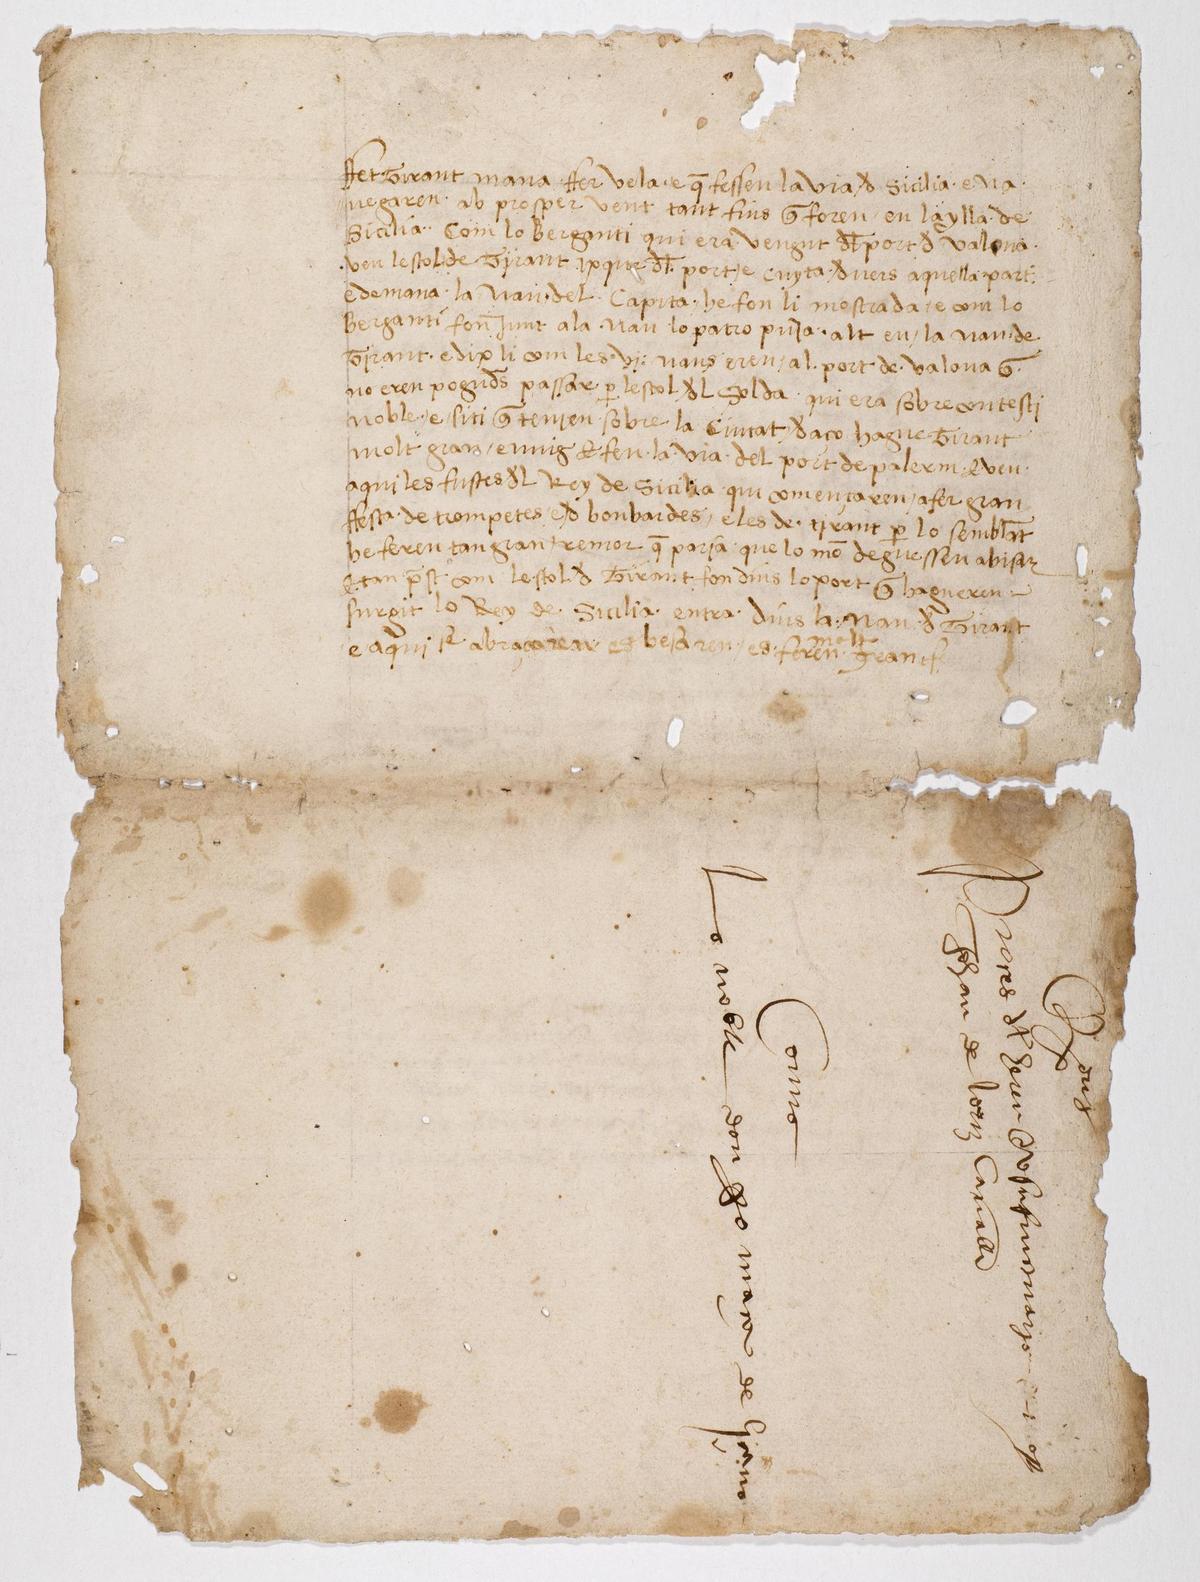 ffet Tirant mana ffer vela e q̄ fessen la via d̄ Sicilia e na
uegaren ab prosper vent tant fins q̄ foren en la ylla de
Sicilia Com lo berganti qui era vengut dl̄ port d̄ valona
veu lestol de Tirant ixque dl̄ port e cuyta d̄uers aquella part
e demana la Nau del Capita he fon li mostrada e com lo
berganti fon Junt a la nau lo patro puja alt en la nau de
Tirant e dix li com les vj naus eren al port de valona q̄
no eren poguds passar p̄ lestol dl̄ Solda qui era sobre contesti
noble e siti q̄ tenien sobre la Ciutat d̄aço hague Tirant
molt gran ennuig & feu la via del port de palerm & veu
aqui les fustes dl̄ Rey de Sicilia qui començaren a fer gran
ffesta de trompetes e d̄ bonbardes e les de tirant p̄ lo semblāt
he feren tan gran remor q̄ paria que lo mō degues sen abisar
& tan p̄st com lestol d̄ Tirant fon dins lo port q̄ hagueren
surgit lo Rey de Sicilia entra dins la Nau d̄ Tirant
e aqui se abraçaren es besaren es feren molt grans
Lo noble don
mare de
Johan de